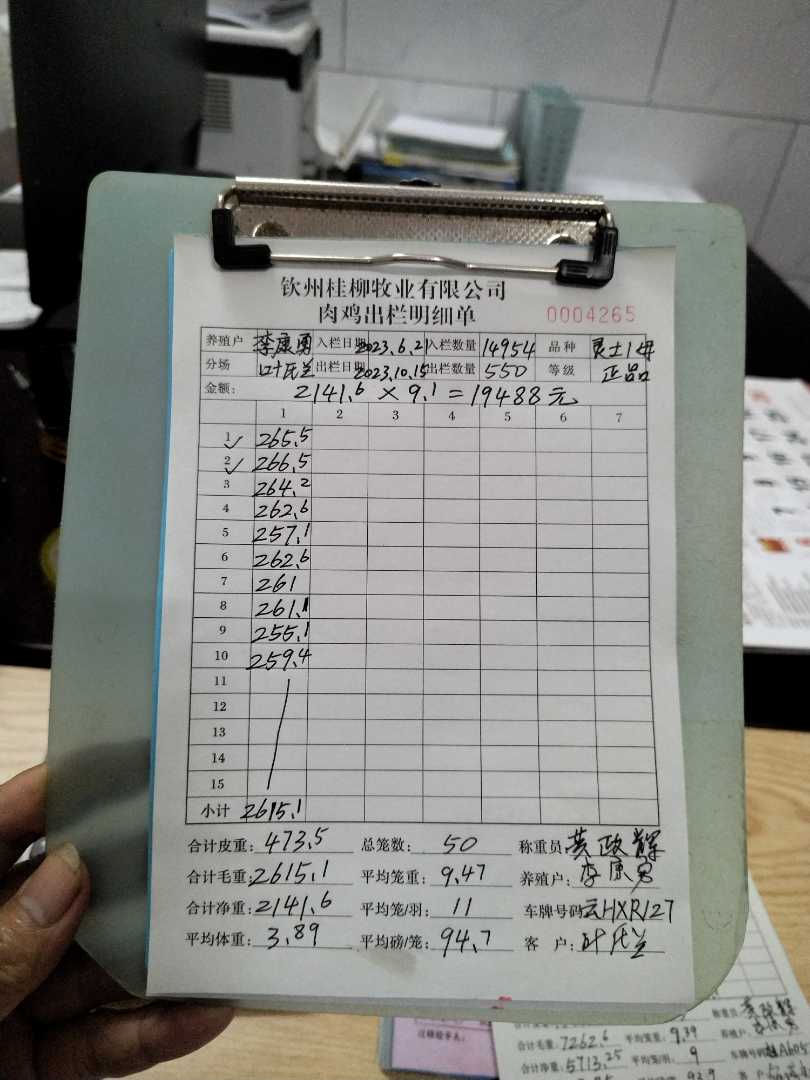 钦州桂柳牧业有限公司
肉鸡出栏明细单 0004265
养殖户 李康勇 入栏日期 2023.6.21 入栏数量 14954 品种 灵土1母
分场 叶氏兰 出栏日期 2023.10.15 出栏数量 550 等级 正品
金额: 2141.6 × 9.1 = 19488元
1 2 3 4 5 6 7
1 265.5
2 266.5
3 264.2
4 262.6
5 257.1
6 262.6
7 261
8 261.1
9 255.1
10 259.4
11
12
13
14
15
小计 2615.1
合计皮重: 473.5 总笼数: 50 称重员: 黄政辉
合计毛重: 2615.1 平均笼重: 9.47 养殖户: 李康勇
合计净重: 2141.6 平均笼/羽: 11 车牌号码: 云HXR127
平均体重: 3.89 平均磅/笼: 94.7 客户: 叶氏兰
称重员:
合计毛重: 7262.6 平均笼重: 9.39 养殖户:
合计净重: 5713.25 平均笼/羽: 9 车牌号码
92.9 客户
过磅经手人: